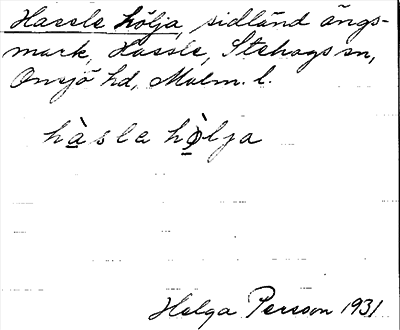 Hassle hölja, sidländ ängs-
mark, Hassle, Stehags sn,
Onsjö hd, Malm. l.
hàsla hòlja
Helga Persson 1931